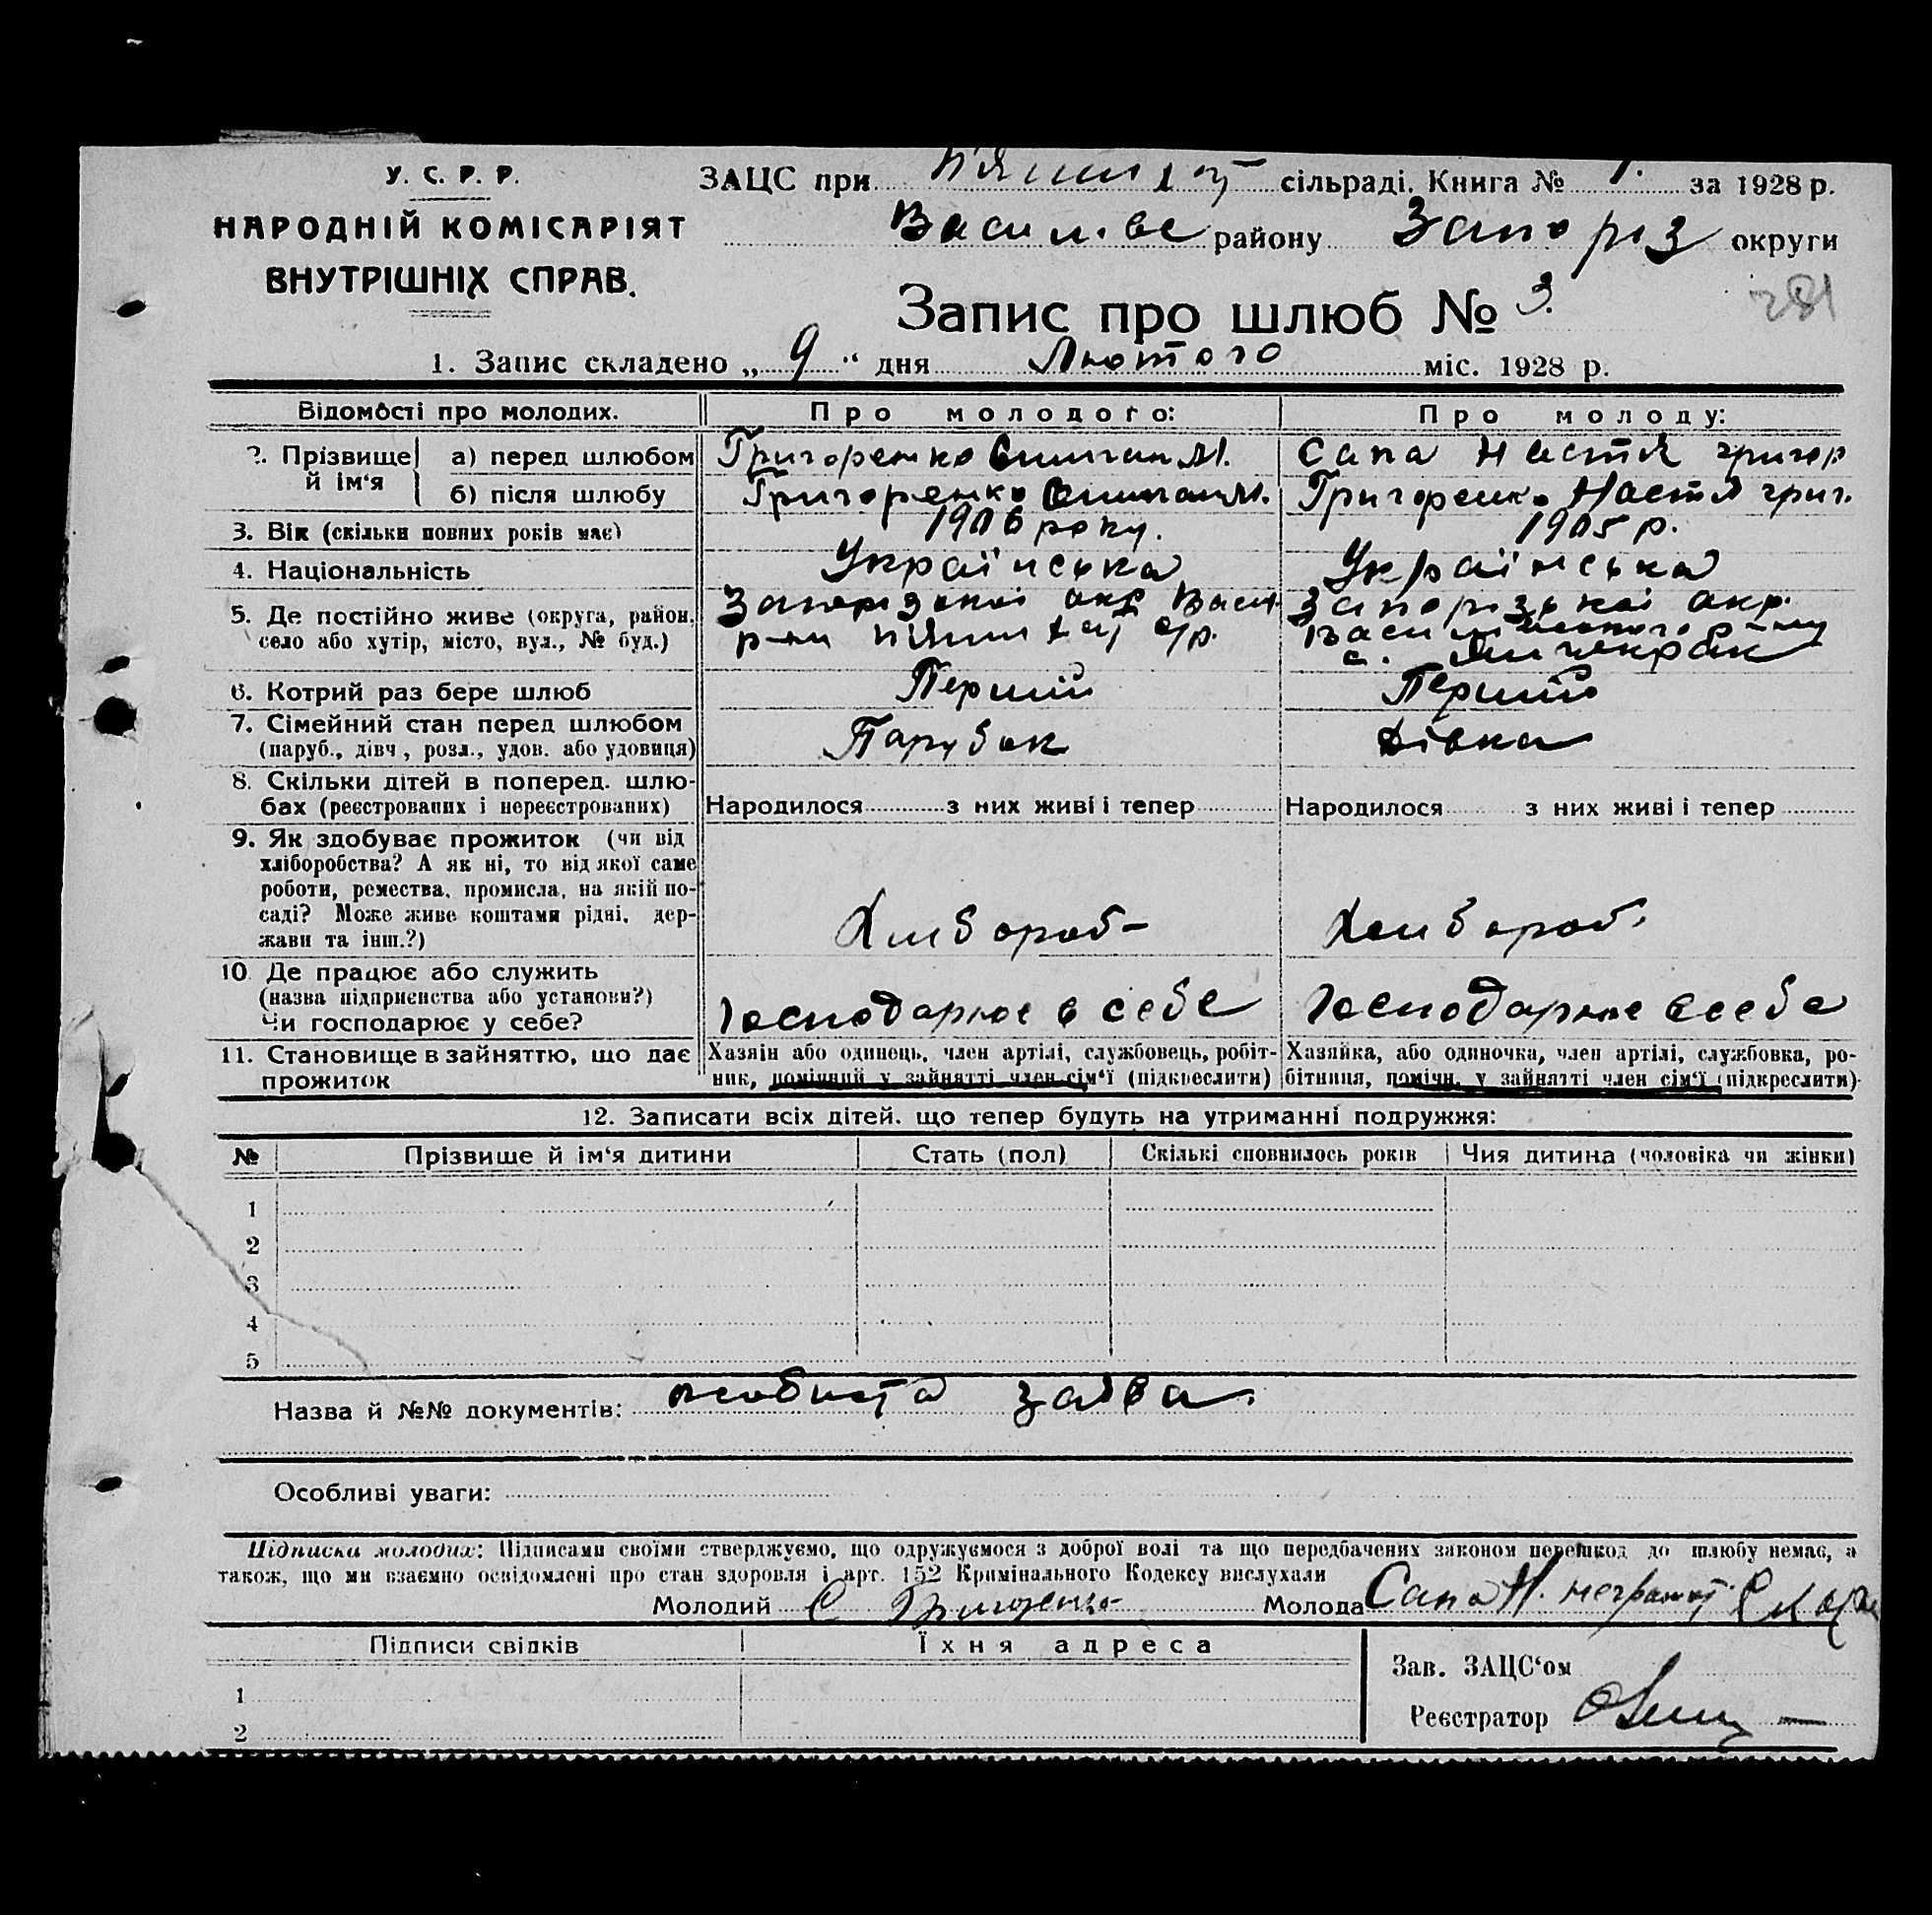 У. С. Р. Р.
НАРОДНІЙ КОМІСАРІЯТ
ВНУТРІШНІХ СПРАВ.
ЗАЦС при сільраді. Книга № 1. за 1928 р.
Василівс району Запоріз округи
281
Запис про шлюб № 3.
1. Запис складено „ 9 “ дня Лютого міс. 1928 р.
Відомості про молодих. Про молодого: Про молоду:
2. Прізвище й ім‘я
а) перед шлюбом Григоренко М. Сапа Настя григор
б) після шлюбу Григоренко М. Григоренко Настя григ.
3. Вік (скільки повних років має) 1906 року. 1905 р.
4. Національність Українська Українська
5. Де постійно живе (округа, район, Запорізької окр Васил. Запорізької окр.
село або хутір, місто, вул., № буд.) р-ну с/р. р-ну
с. Янчекрак
6. Котрий раз бере шлюб Перший Перший
7. Сімейний стан перед шлюбом Парубок Дівка
(паруб., дівч., розл., удов. або удовиця)
8. Скільки дітей в поперед. шлю-
бах (реєстрованих і нереєстрованих) Народилося з них живі і тепер Народилося з них живі і тепер
9. Як здобуває прожиток (чи від
хліборобства? А як ні, то від якої саме
роботи, ремества, промисла, на якій по-
саді? Може живе коштами рідні, дер- Хлибороб- Хлибороб.
жави та інш.?)
10. Де працює або служить
(назва підприємства або установи?) Господарює в себе Господарює в себе
Чи господарює у себе?
11. Становище в зайняттю, що дає Хазяїн або одинець, член артілі, службовець, робіт- Хазяйка, або одиночка, член артілі, службовка, ро-
прожиток ник, помічний у зайнятті член сім‘ї (підкреслити) бітниця, помічн. у зайнятті член сім‘ї (підкреслити)
12. Записати всіх дітей, що тепер будуть на утриманні подружжя:
№ Прізвище й ім‘я дитини Стать (пол) Скількі сповнилось років Чия дитина (чоловіка чи жінки)
1
2
3
4
5
Назва й №№ документів: особиста заява.
Особливі уваги:
Підписки молодих: Підписами своїми стверджуємо, що одружуємося з доброї волі та що передбачених законом перешкод до шлюбу немає, а
також, що ми взаємно освідомлені про стан здоровля і арт. 152 Кримінального Кодексу вислухали
Молодий С Григоренко Молода Сапа Н. неграмот
Підписи свідків Їхня адреса
1
2
Зав. ЗАЦС‘ом
Реєстратор